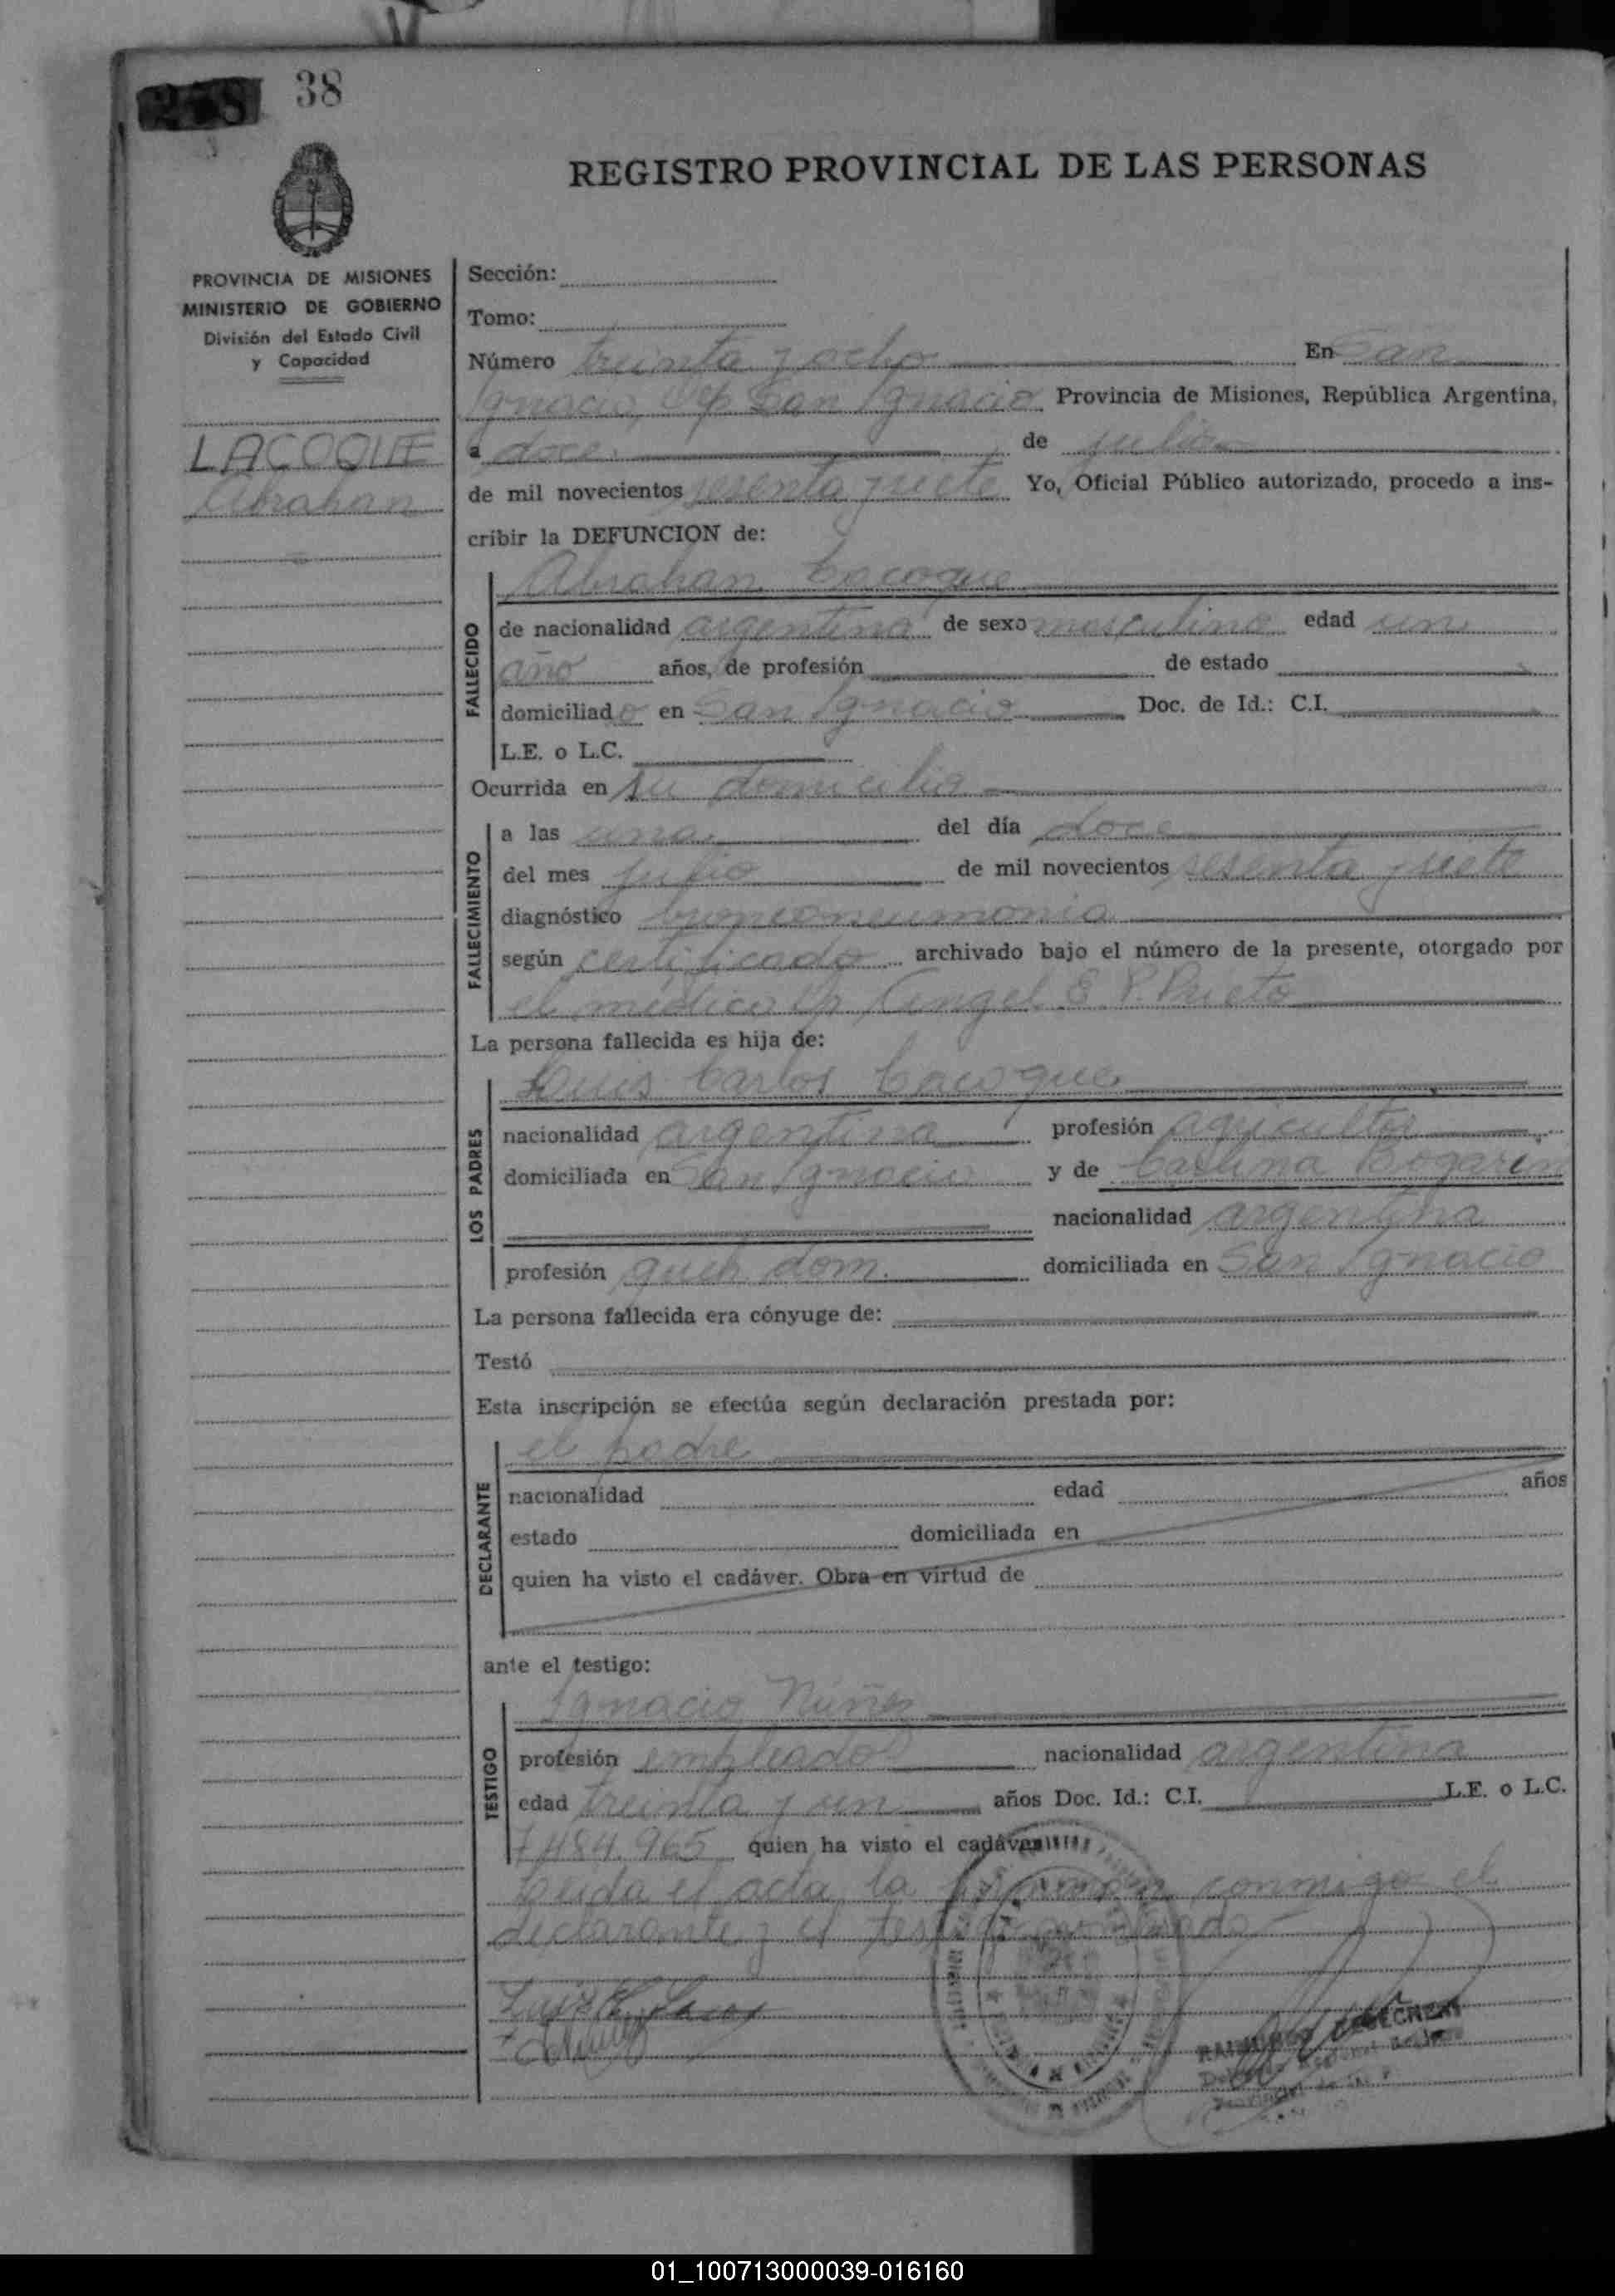 38
REGISTRO PROVINCIAL DE LAS PERSONAS
PROVINCIA DE MISIONES
MINISTERIO DE GOBIERNO
División del Estado Civil
y Capacidad
LACOQUE
Abrahan
Sección:
Tomo:
Número treinta y ocho En San
Ignacio, Dp San Ignacio Provincia de Misiones, República Argentina,
a doce de julio
de mil novecientos sesenta y siete Yo, Oficial Público autorizado, procedo a ins-
cribir la DEFUNCION de:
Abrahan Lacoque
FALLECIDO
de nacionalidad argentina de sexo masculino edad un
año años, de profesión de estado
domiciliado en San Ignacio Doc. de Id.: C.I.
L.E. o L.C.
Ocurrida en su domicilio
FALLECIMIENTO
a las una del día doce
del mes julio de mil novecientos sesenta y siete
diagnóstico bronconeumonia
según certificado archivado bajo el número de la presente, otorgado por
el médico Dr Angel E. P. Prieto
La persona fallecida es hija de:
LOS PADRES
Luis Carlos Lacoque
nacionalidad argentina profesión agricultor
domiciliada en San Ignacio y de Carlina Bogarin
nacionalidad argentina
profesión queh. dom. domiciliada en San Ignacio
La persona fallecida era cónyuge de:
Testó
Esta inscripción se efectúa según declaración prestada por:
DECLARANTE
el padre
nacionalidad edad años
estado domiciliada en
quien ha visto el cadáver. Obra en virtud de
ante el testigo:
TESTIGO
Ignacio Núñez
profesión empleado nacionalidad argentina
edad treinta y un años Doc. Id.: C.I. L.E. o L.C.
7.484.965 quien ha visto el cadáver
Leida el acta, la firman conmigo el
declarante y el testigo
01_100713000039-016160